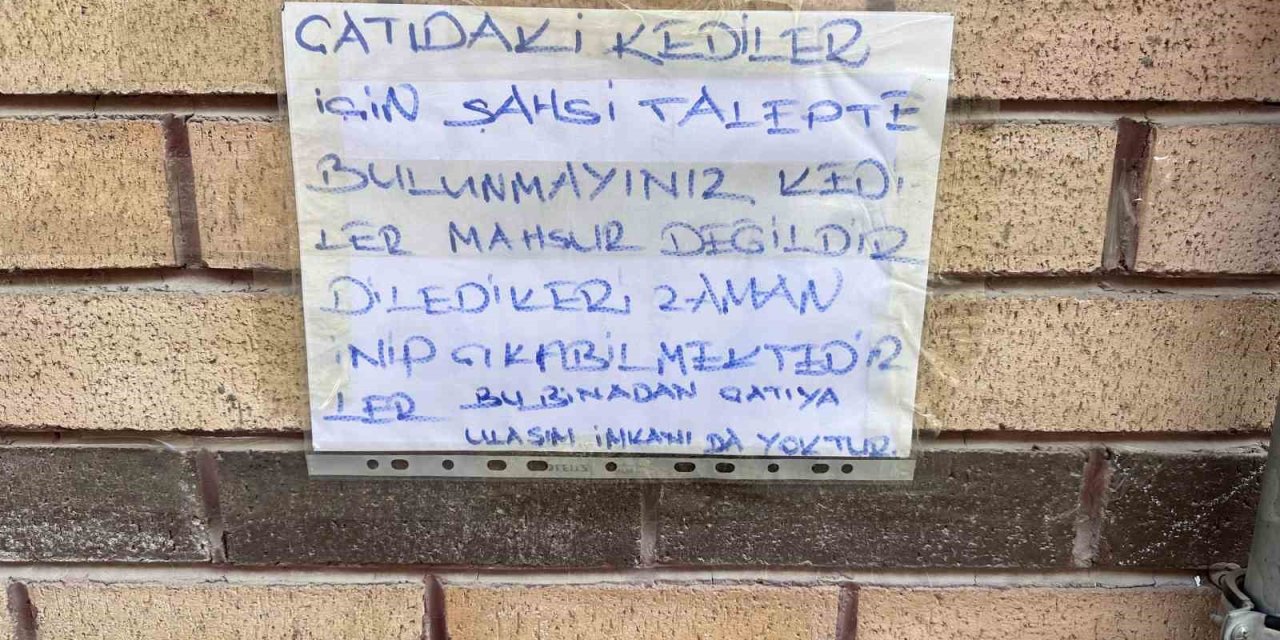 ÇATIDAKİ KEDİLER
İÇİN ŞAHSİ TALEPTE
BULUNMAYINIZ, KEDİ-
LER MAHSUR DEĞİLDİR
DİLEDİKERİ ZAMAN
İNİP ÇIKABİLMEKTEDİR
LER BU BİNADAN ÇATIYA
ULAŞIM İMKANI DA YOKTUR.